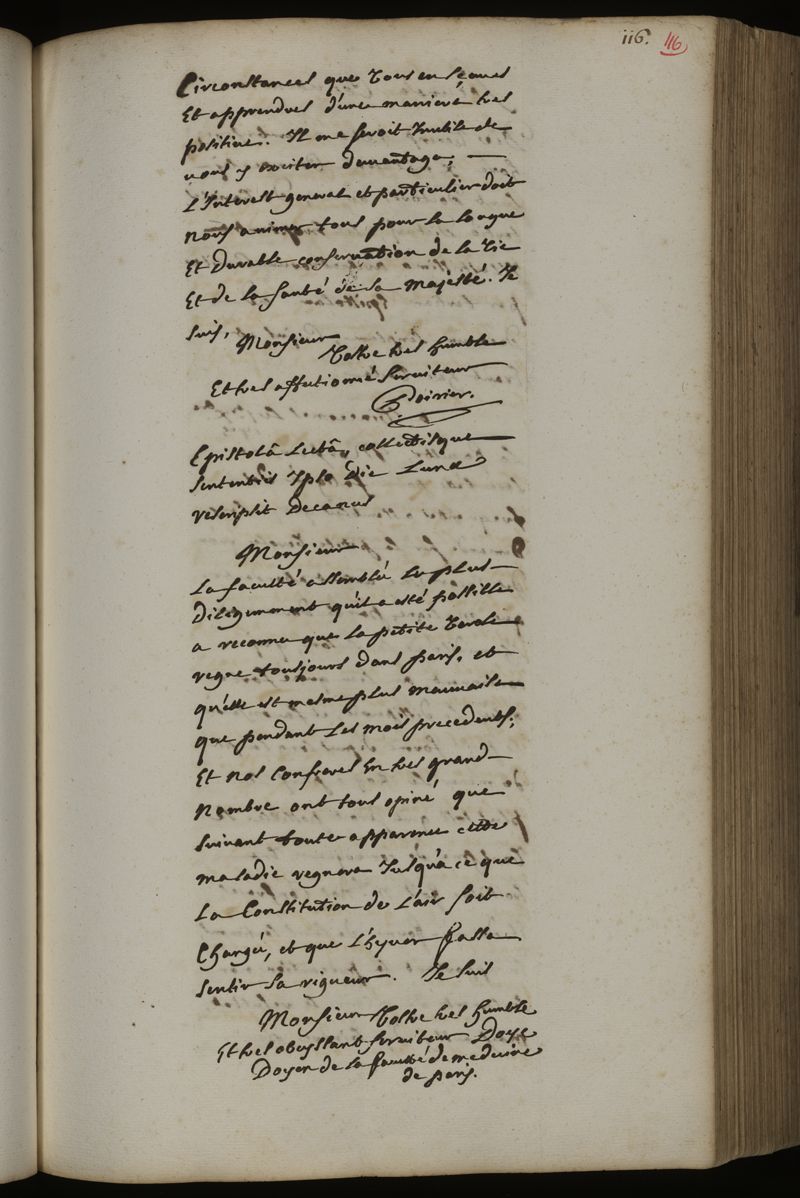 116. 116
Circonstances que vous en sçaurés
Et apprendres d'une maniere tres
positive. Il me seroit Inutile de
vous y exciter davantage,
L'Interest general et particulier doit
Nous animer tous pour la longue
Et Durable conservation de la Vie
Et de la santé de sa Majesté. Je
suis, Monsieur
Vostre tres humble
Et tres affectionné serviteur
Poirier.
Epistolâ Lectâ, collectisque
sententiis Ipso Die Lunæ
rescripsit Decanus
Monsieur
La faculté assemblée le plus
Diligemment qu'il a esté possible
a reconnu que la petite Verole
regne tousjours dans paris, et
qu'elle est mesme plus mauvaise
que pendant Les mois precedents;
Et Nos Confreres En tres grand
Nombre ont tous opiné que
suivant toute apparence cette
maladie regnera Jusqu'à ce que
La Constitution de L'air soit
Changée, et que L'hyver fasse
sentir sa rigueur. Je suis
Monsieur Vostre tres humble
Et tres obeyssant serviteur Doye
Doyen de la faculté de medecine
de paris.